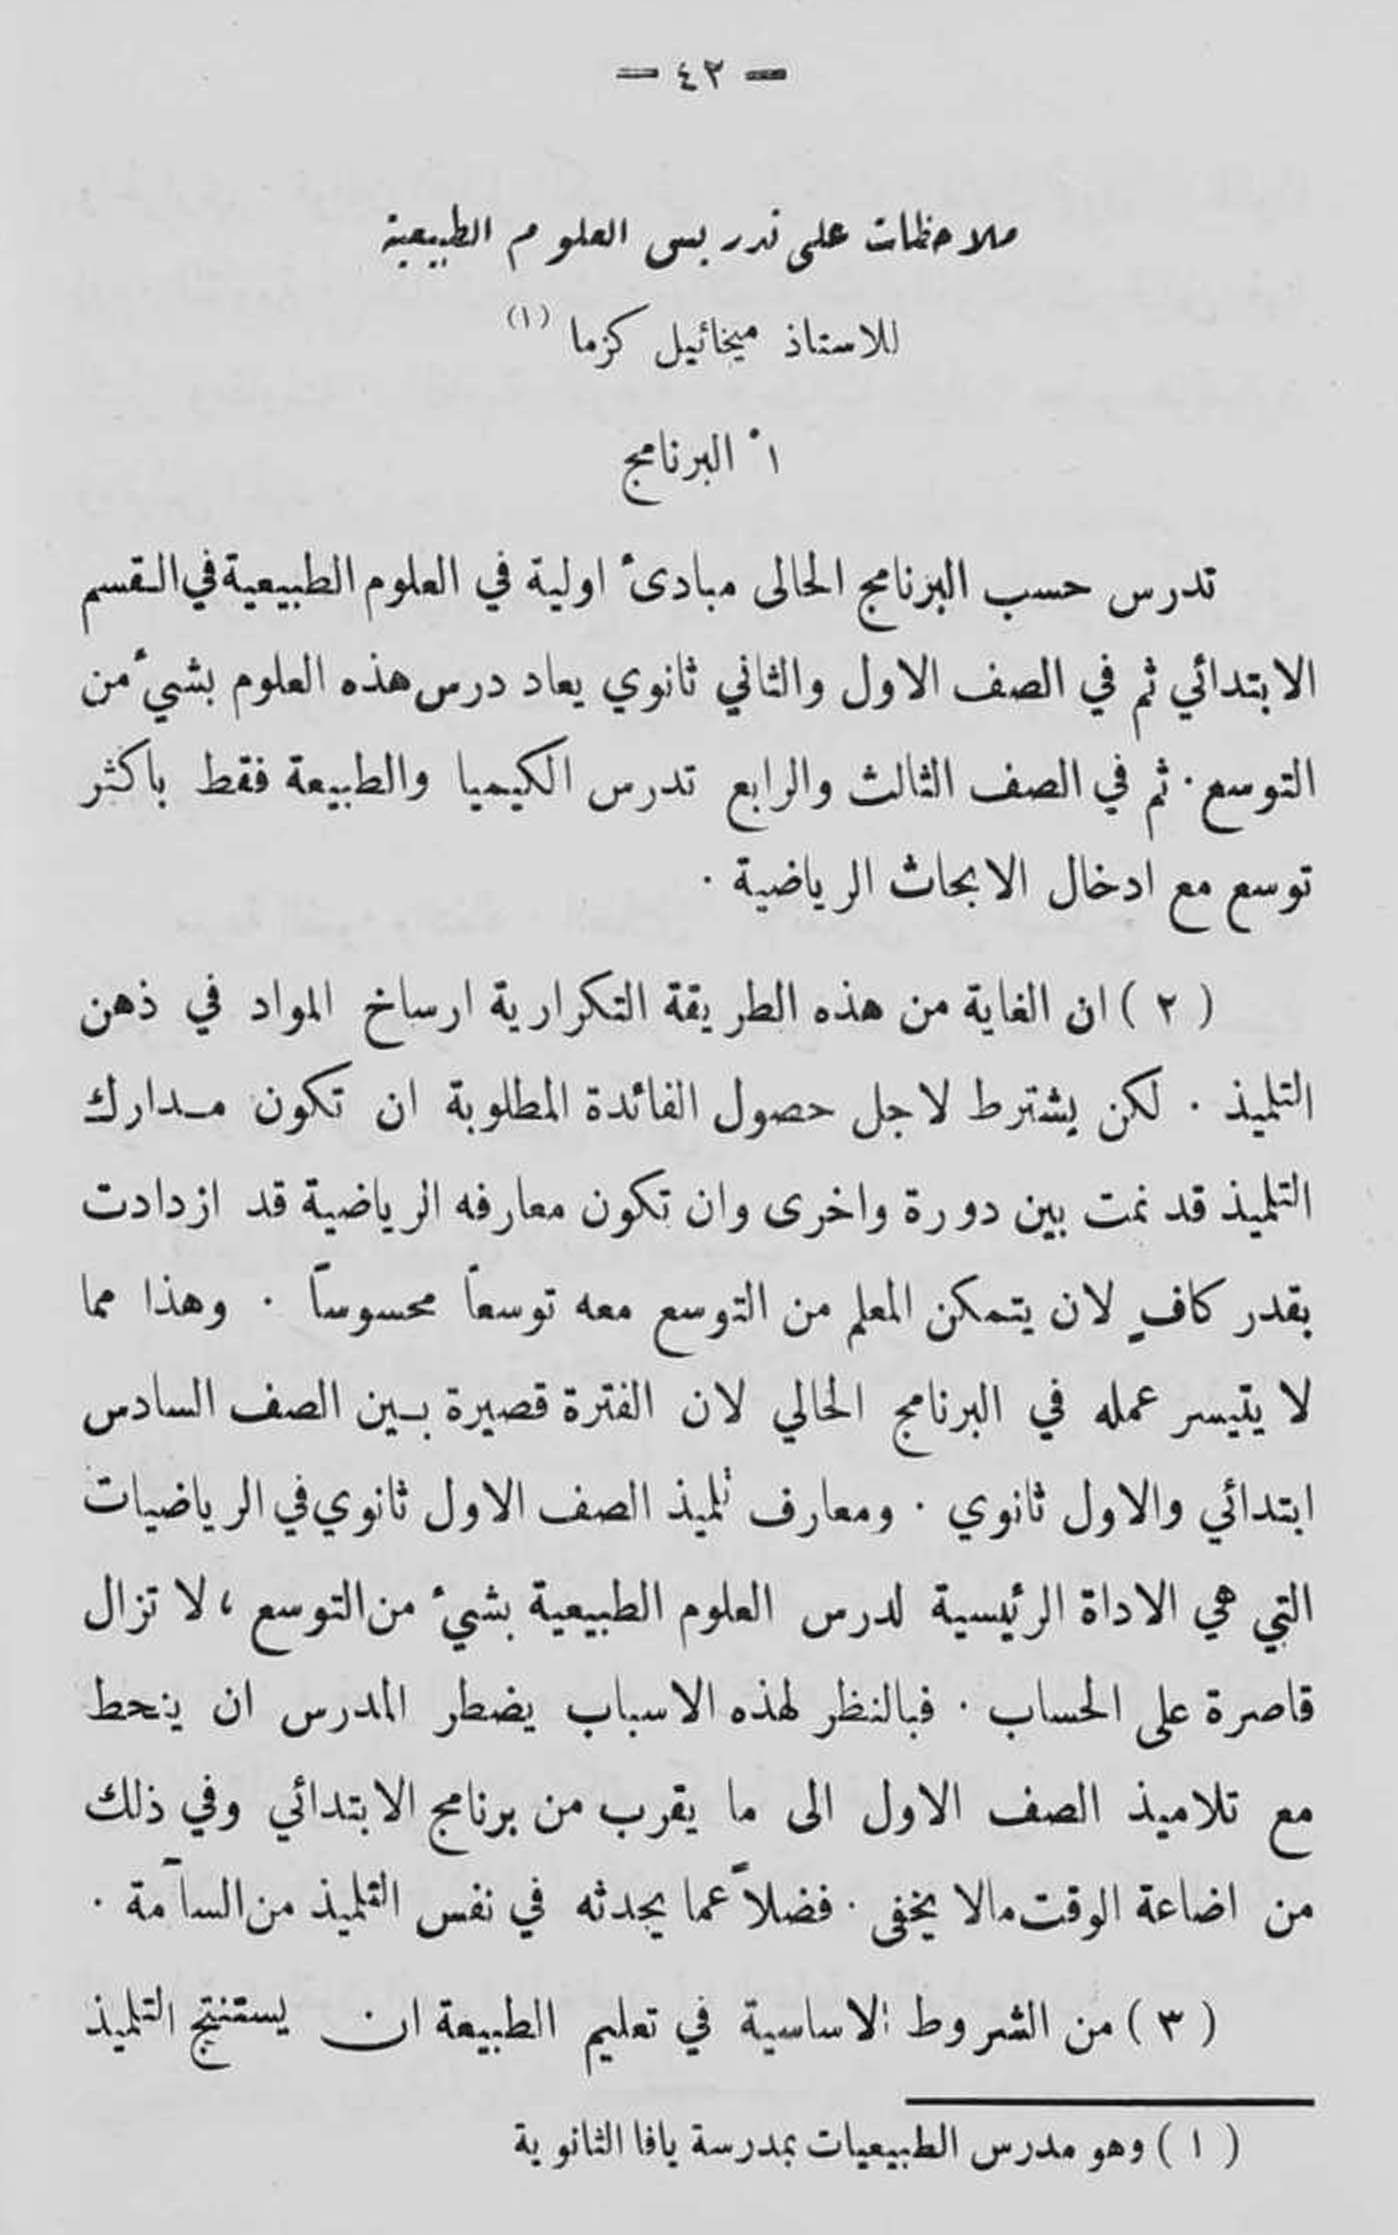 — ٤٢ —
ملاحظات على تدريس العلوم الطبيعية
للاستاذ ميخائيل كزما (١)
١° البرنامج
تدرس حسب البرنامج الحالى مبادئ اولية في العلوم الطبيعية في القسم
الابتدائي ثم في الصف الاول والثاني ثانوي يعاد درس هذه العلوم بشيء من
التوسع . ثم في الصف الثالث والرابع تدرس الكيميا والطبيعة فقط باكثر
توسع مع ادخال الابحاث الرياضية .
( ٢ ) ان الغاية من هذه الطريقة التكرارية ارساخ المواد في ذهن
التلميذ . لكن يشترط لاجل حصول الفائدة المطلوبة ان تكون مدارك
التلميذ قد نمت بين دورة واخرى وان تكون معارفه الرياضية قد ازدادت
بقدر كافٍ لان يتمكن المعلم من التوسع معه توسعاً محسوساً . وهذا مما
لا يتيسر عمله في البرنامج الحالي لان الفترة قصيرة بين الصف السادس
ابتدائي والاول ثانوي . ومعارف تلميذ الصف الاول ثانوي في الرياضيات
التي هي الاداة الرئيسية لدرس العلوم الطبيعية بشيء من التوسع ، لا تزال
قاصرة على الحساب . فبالنظر لهذه الاسباب يضطر المدرس ان ينحط
مع تلاميذ الصف الاول الى ما يقرب من برنامج الابتدائي وفي ذلك
من اضاعة الوقت مالا يخفى . فضلاً عما يحدثه في نفس التلميذ من السآمة .
( ٣ ) من الشروط الاساسية في تعليم الطبيعة ان يستنتج التلميذ
( ١ ) وهو مدرس الطبيعيات بمدرسة يافا الثانوية